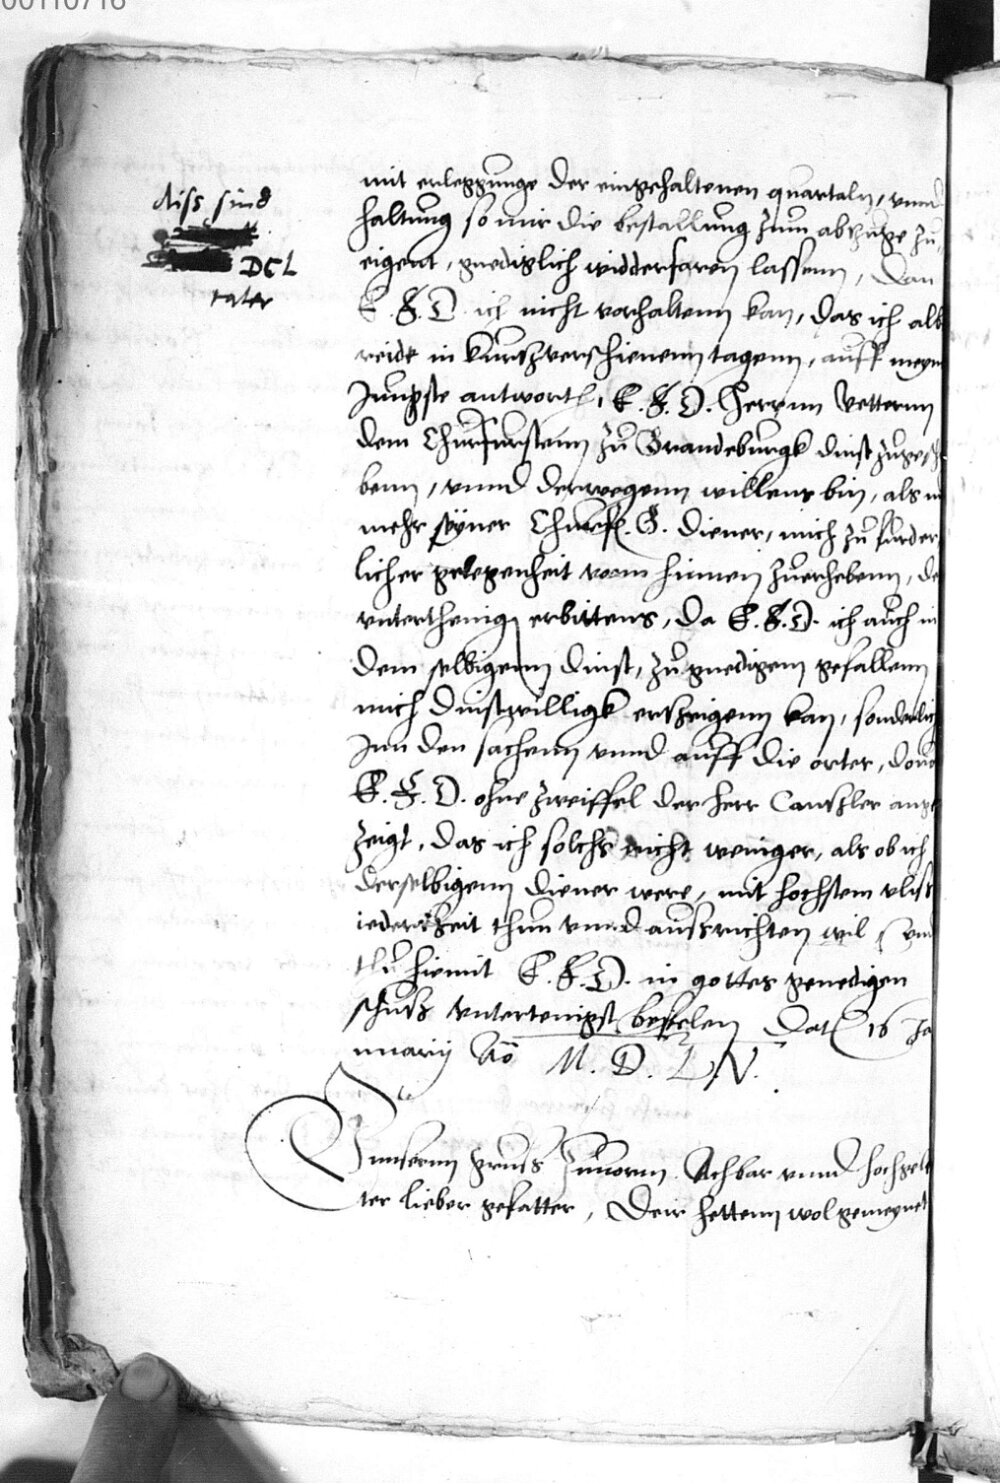 00110716
diss sind
DCL
taler
mit erleggunge der eingehaltenen quartaln, vnnd
haltung so mir die bestallung zum abzuge zu
eigent, gnediglich widderfaren lassenn, dan
E. F. D. ich nicht vorhaltenn kan, das ich alb
reide in kurtzverschienenn tagenn, auff meyn
Jungste antwort, E. F. D. herrnn Vetternn
dem Churfurstenn zu Brandeburgk dinst zuge
benn, vnnd derwegenn willens bin, als
mehr seyner Churf. G. diener, mich zu furder
licher gelegenheit vonn hinnen zuerhebenn, de
vntertheniges erbittens, da E. F. D. ich auch in
dem selbigenn dinst, zu gnedigem gefallenn
mich dinstwilligk ertzeigenn kan, sonderlich
Inn den sachenn vnnd auff die orter, dauo
E. F. D. ohne zweiffel der herr Cantzler ange
zeigt, das ich solchs nicht weniger, als ob ich
derselbigenn diener were, mit hochstem vliss
iederzeit thun vnnd aussrichten wil, vnd
thu hiemit E. F. D. in gottes genedigen
schutz vntertenigst befhelen Dat 16 Ja
nuarij Ao M. D. L. V.
Vnnsernn gruss zuuornn Achbar vnnd hochgelar
ter lieber gefatter, Wir hettenn wol gemeynet